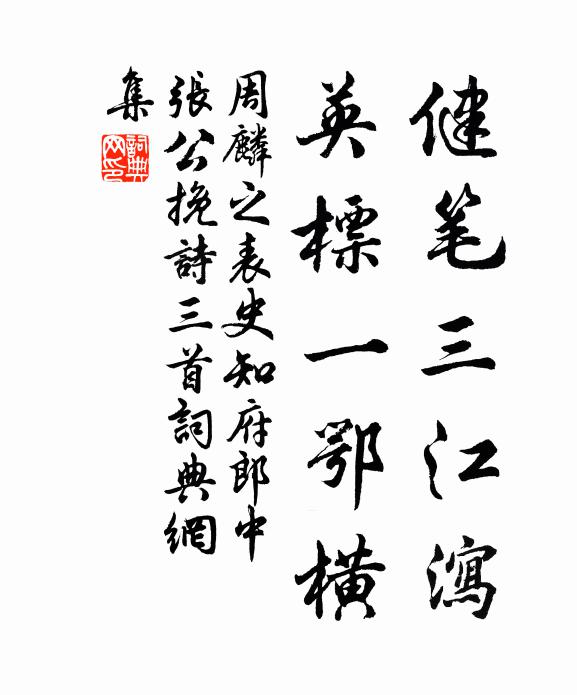 健笔三江瀉
英標一鄂橫
周麟之表史知府郎中
張公挽詩三首詞典網
集
詞典
网印